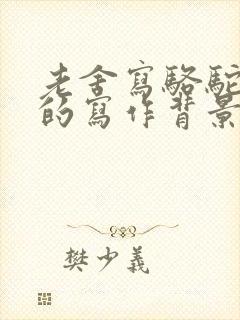 老舍寫駱駝
的寫作背景
樊少義